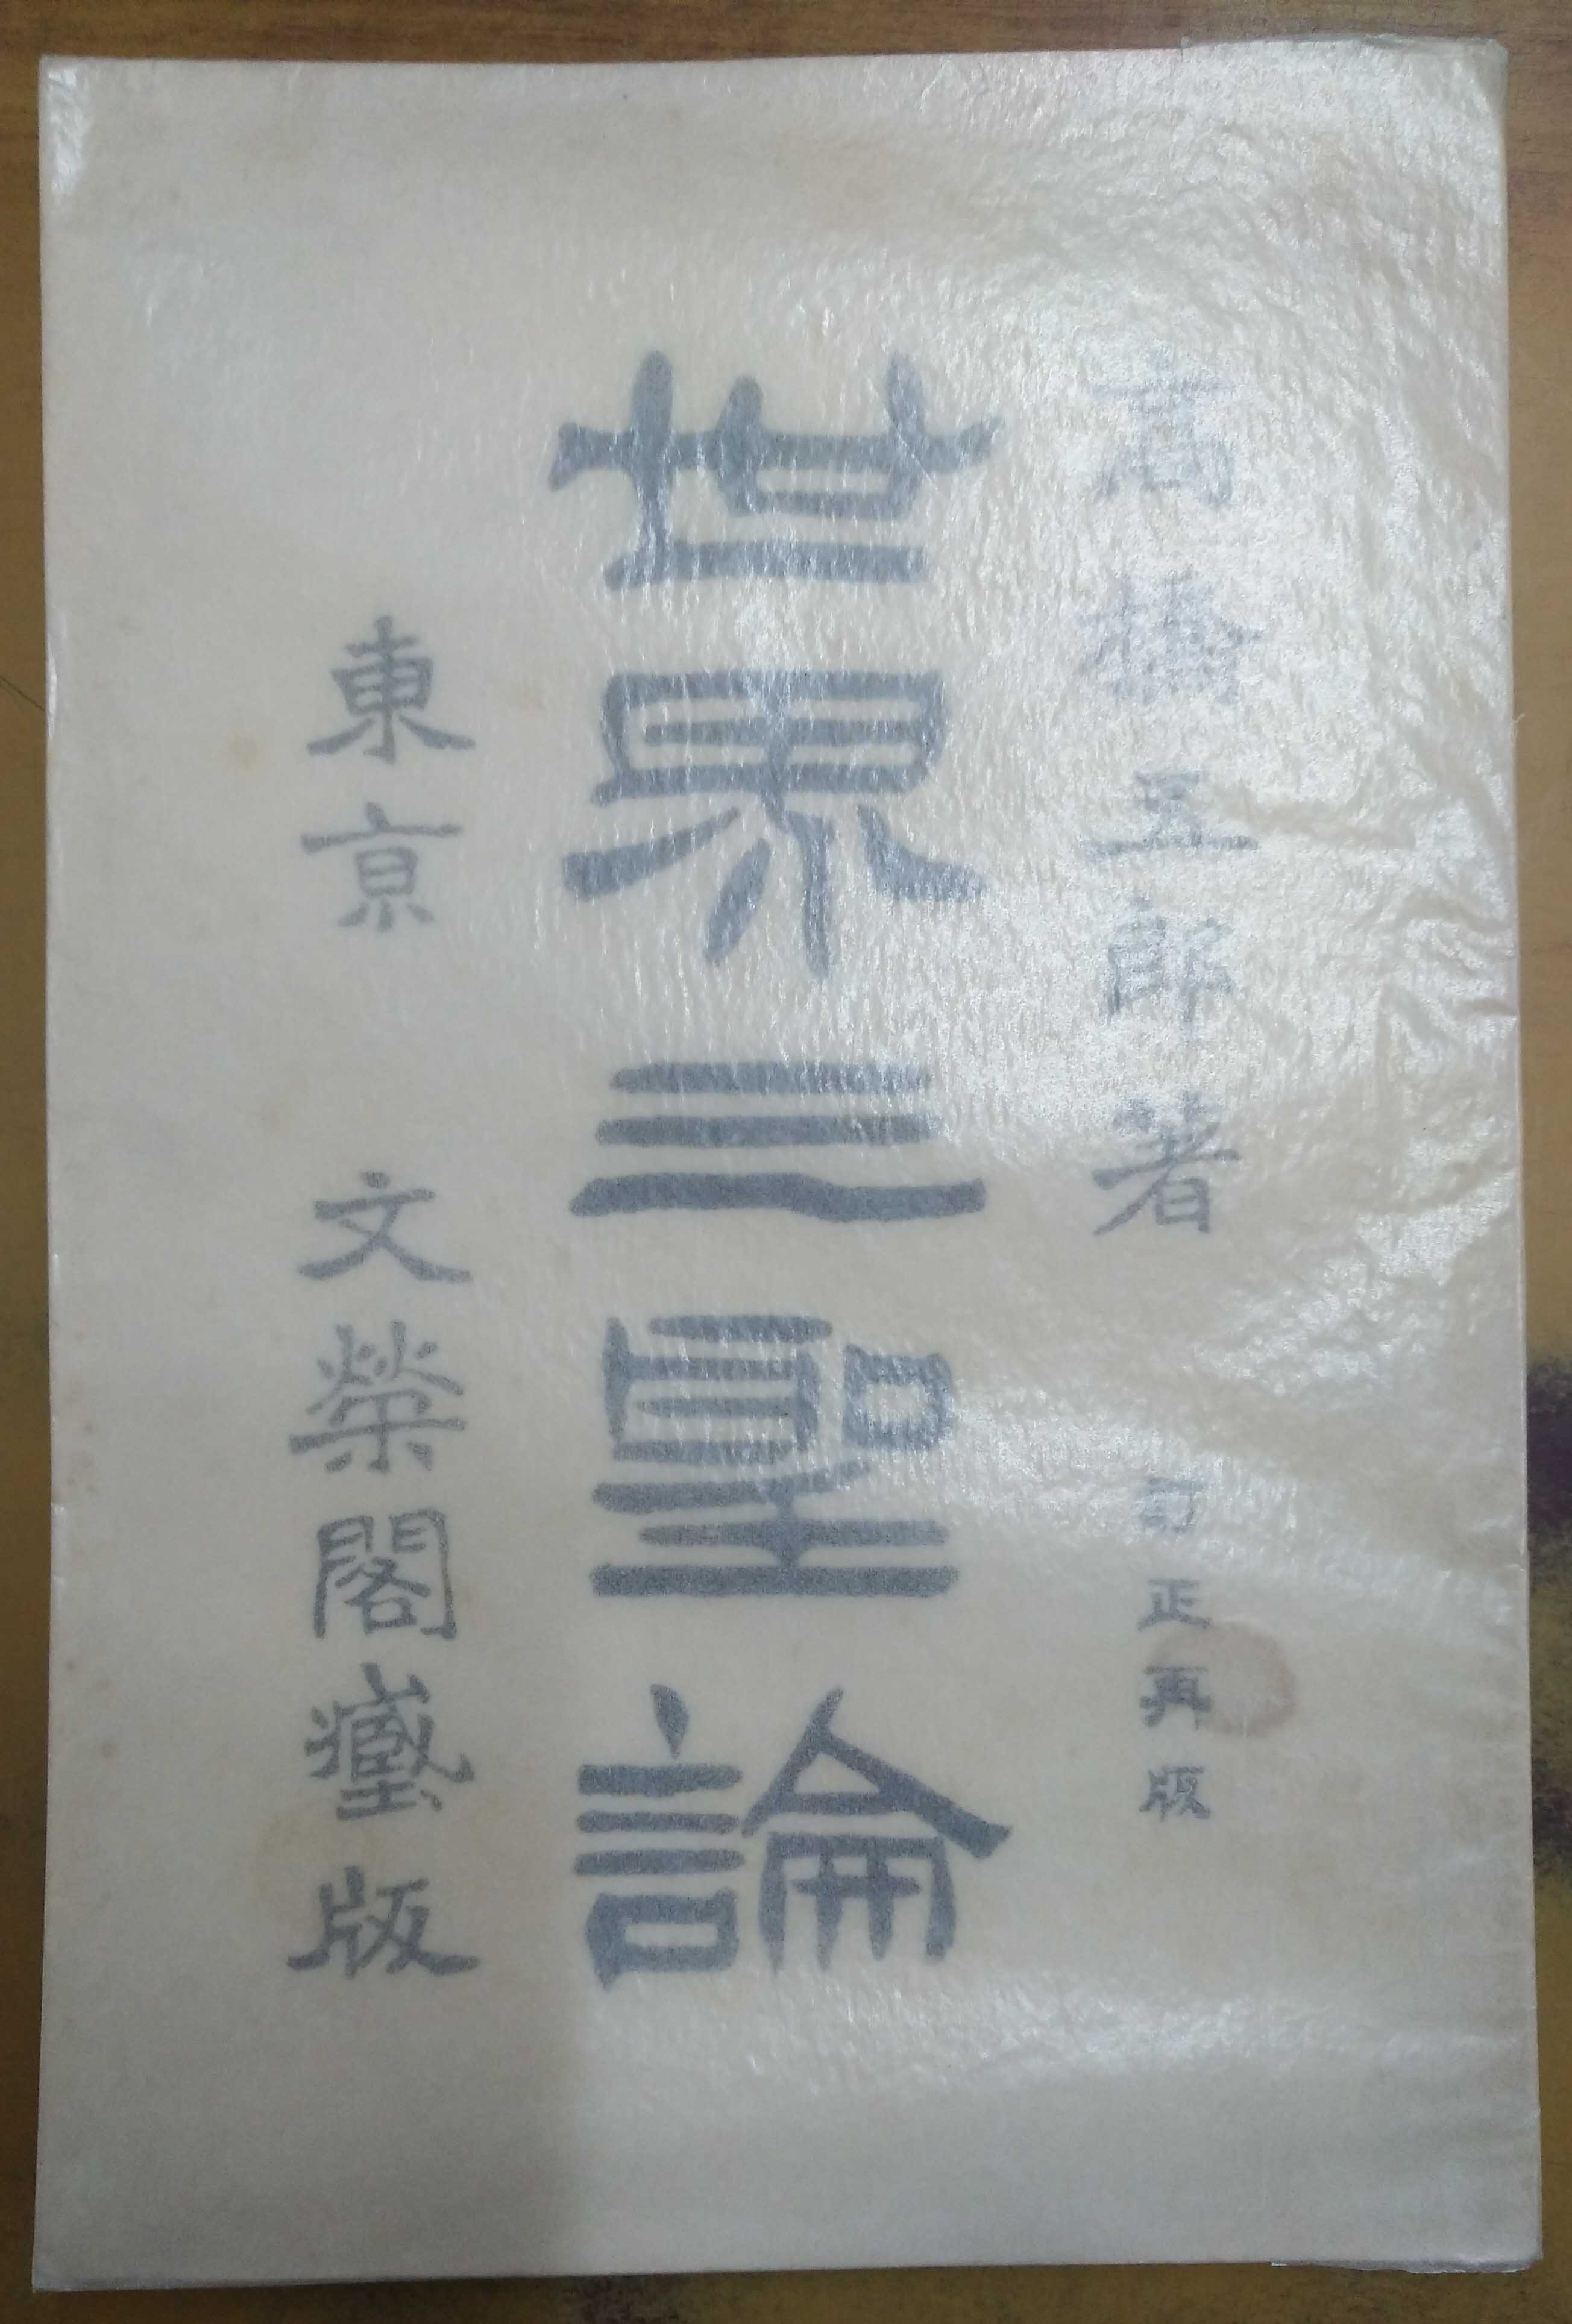 高橋五郎著 訂正再版
世界三聖論
東京 文榮閣藏版